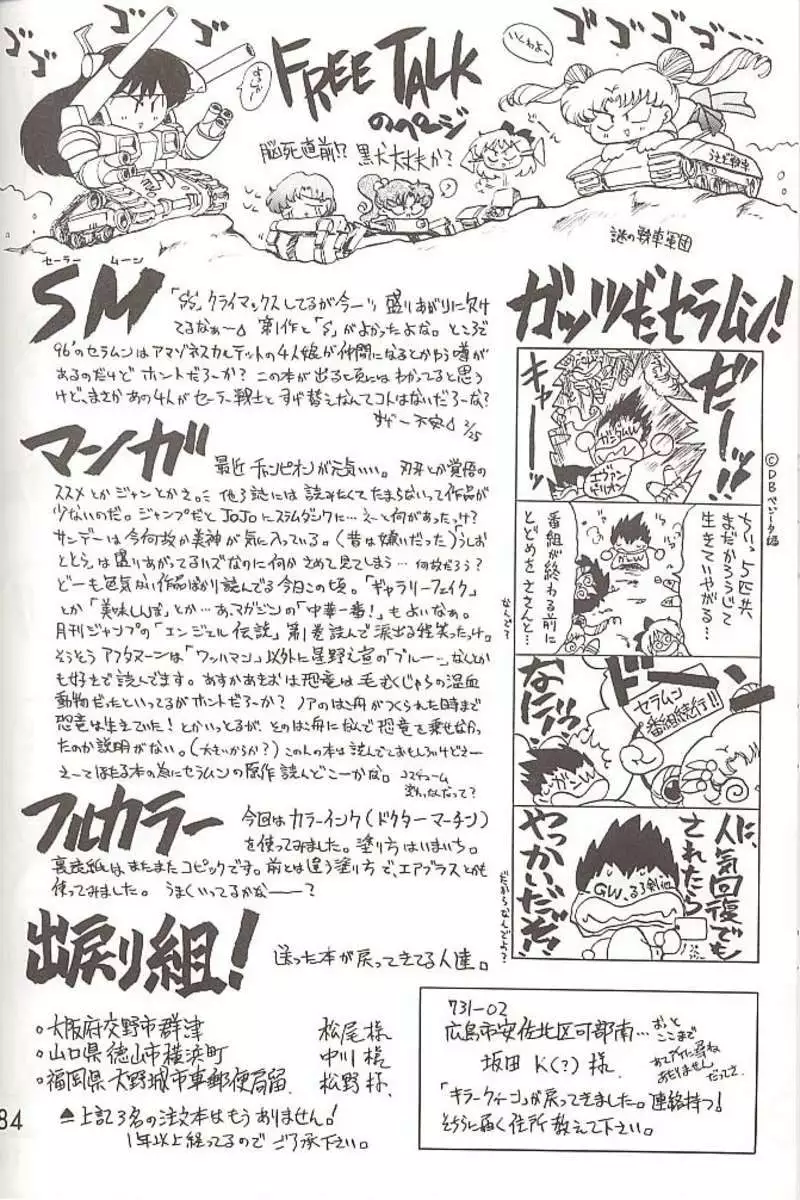 ゴゴゴ
よっしゃー
FREE TALK
のページ
いくわよー
ゴゴゴゴ…
脳死直前!? 黒犬大丈夫か?
うさぎ戦車
謎の戦車軍団
セーラー ムーン
SM
「SS」クライマックスしてるが今一つ盛りあがりに欠け
てるなぁ〜。第1作と「S」がよかったよな。ところで
96'のセラムンはアマゾネスカルテットの4人娘が仲間になるとかゆう噂が
あるのだけどホントだろーか? この本が出る頃にはわかってると思う
けど、まさかあの4人がセーラー戦士とすげ替えなんてコトはないだろーな?
すげー不安 2/25
マンガ
最近チャンピオンが元気いい。刃牙とか覚悟の
ススメとかジャンとかさぇ。他3誌には読みたくてたまらないって作品が
少ないのだ。ジャンプだとJoJoにスラムダンクに…えーと何があったっけ?
サンデーは今何故か美神が気に入っている。(昔は嫌いだった)「うしお
ととら」は盛りあがってるハズなのに何かさめて見てしまう…何故だろう?
どーも色気ない作品ばかり読んでる今日この頃。「ギャラリーフェイク」
とか「美味しんぼ」とか…あ、マガジンの「中華一番!」もよいなぁ。
月刊ジャンプの「エンジェル伝説」第1巻読んで涙出る程笑ったっけ。
そうそうアフタヌーンは「ワッハマン」以外に星野之宣の「ブルー」なんとか
も好きで読んでます。あすかあきおは恐竜は毛むくじゃらの温血
動物だったといってるがホントだろーか? ノアのはこ舟がつくられた時まで
恐竜は生きていた!とかいっとるが、そのはこ舟になんで恐竜を乗せなかっ
たのか説明がない。(大きいからか?)この人の本は読んでておもしろいけどさー
えーてほたる本の為にセラムンの原作読んどこーかな。
コスチューム
フルカラー
今回はカラーインク(ドクターマーチン)
を使ってみました。塗り方はいまいち。
裏表紙はまたまたコピックです。前とは違う塗り方で、エアブラスとかも
使ってみました。 うまくいってるかなー?
出戻り組!
送った本が戻ってきてる人達。
○大阪府交野市群津 松尾様
○山口県徳山市横浜町 中川様
○福岡県大野城市東郵便局留 松野様
▲上記3名の注文本はもうありません!
1年以上経ってるのでご了承下さい。
84
ガッツだセラムン!
©DBベジータ編
ぜーッ!!
ギャーッ
ガンダムW
エヴァンゲリオン
ちいっ5匹共
まだかろうじて
生きていやがる…
番組が終わる前に
とどめをささんと…
なんで?
ドーン
セラムン
番組続行!!
なにいっ
ガンW
人気回復でも
されたら
やっかいだぞ!
GW、るろ剣他
だからなんでよ?
731-02
広島市安佐北区可部南…
おっと
ここまで
坂田 K(?)様
「キラークィーン」が戻ってきました。連絡持つ!
そちらに届く住所教えて下さい。